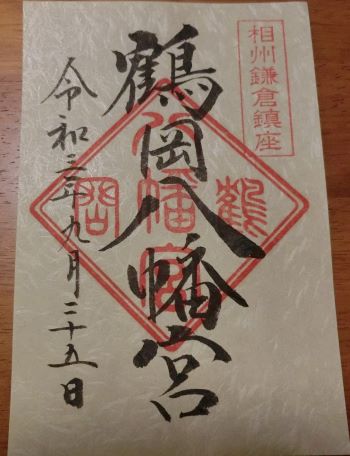 相州鎌倉鎮座
鶴岡八幡宮
鶴岡八幡宮
令和三年九月二十五日